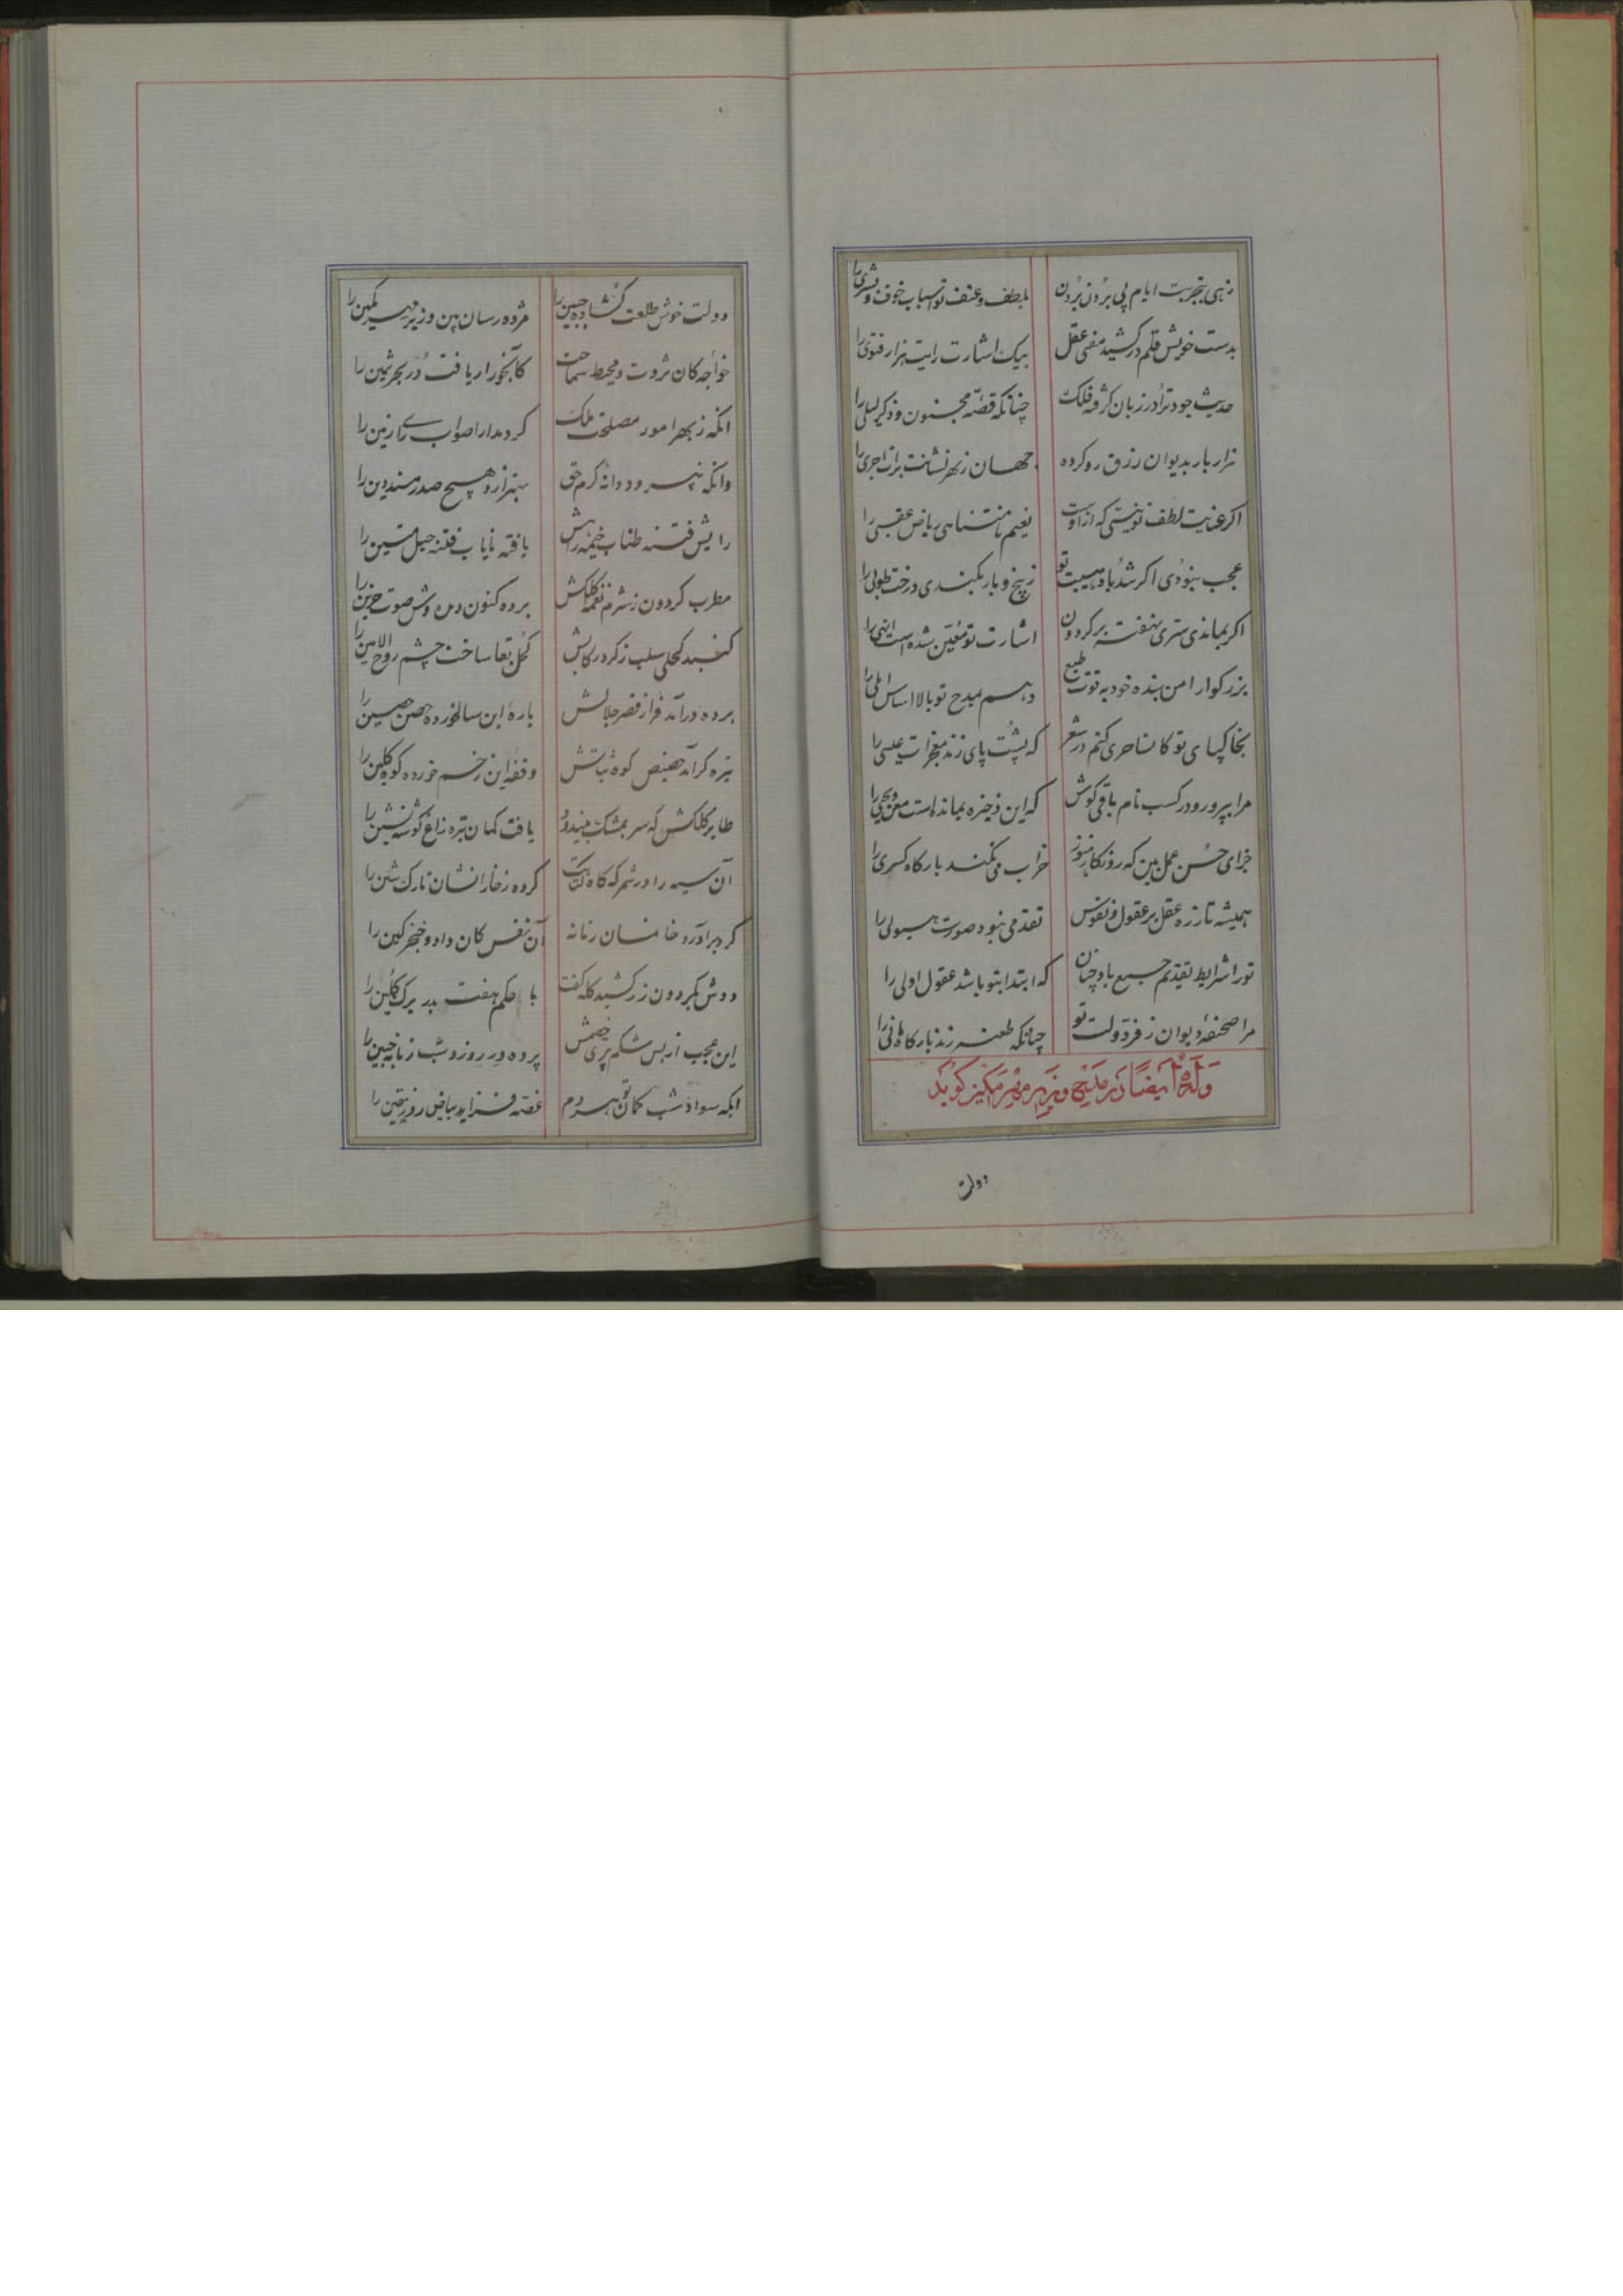 زهی بتجربت ایام پی بر دن بردن بلطف و عنف تو اسباب خوف و بشری را
بدست خویش قلم درکشید مفتی عقل بیک اشارت رایت هزار فتوی را
حدیث جود ترا در زبان گرفته فلک چنانکه قصه مجنون و ذکر لیلی را
هزار بار بدیوان رزق رو کرده جهان ز بهر نشانت برات اجری را
اگر عنایت لطف تو نیستی که ازاوست نعیم نامتناهی ریاض عقبی را
عجب نبودی اگر تندباد هیبت تو ز بیخ و بار بکندی درخت طوبی را
اگر بماندی ستری نهفته بر گردون اشارت تو معین شده است انهی را
بزرگوارا من بنده خود به قوت طبع دهم بمدح تو بالا اساس املی را
بخاکپای تو کانساحری کنم در شعر که پشت پای زند معجزات عیسی را
مرا بپرور و در کسب نام باقی کوش که این ذخیره بمانده است معن و یحیی را
جزای حسن عمل بین که روزگار هنوز خراب می نکند بارگاه کسری را
همیشه تا ز ره عقل بر عقول و نفوس تقدمی نبود صورت هیولی را
تو را شرایط تقدیم جمیع باد چنان که ابتدا بتو باشد عقول اولی را
مرا صحیفه دیوان ز فر دولت تو چنانکه طعنه زند بارگاه مانی را
وله ایضا در مدح وزیر مهر مکین گوید
دولت
دولت خوش طلعت گشاده جبین را مژده رسان بین وزیر مهر مکین را
خواجه کان ثروت و محیط سماحت کابخور او یافت در بحر ثمین را
آنکه ز بهر امور مصلحت ملک کرد مدارا صواب رای رزین را
وانکه نپرورد دانه کرم حق بهتر از و هیچ صدر مسند دین را
رایش فتنه طناب خیمه راهش یافته نایاب فتنه حبل متین را
مطرب گردون ز شرم نغمه کلکش برده کنون در وش صوت حزین را
گنبد کحلی سلب ز گرد رکابش کحل بقا ساخت چشم روح الامین را
برده درآمد فراز قصر جلالش باره این سالخورده حصن حصین را
تیره گر آمد حضیض کوه ثباتش وقفه این زخم خورده کوه کلین را
طایر کلکش که سر بمشک بیندود یافت کمان تیره زاغ گوشه نشین را
آن سیه را در شمر که گاه کتابت کرده ز خار انشان تارک شین را
گر دبرآورد خان و مان زمانه آن نفس کان داد و خنجر کین را
دوش بگردون زرکشیده کله گفت با حکم هفت بدر برک کلین را
این عجب از بس شکم پری خصمش پرده در روز و شب زمانه جبین را
ایکه سواد شب گمان تو هر دم غصه فزاید بیاض روز یقین را